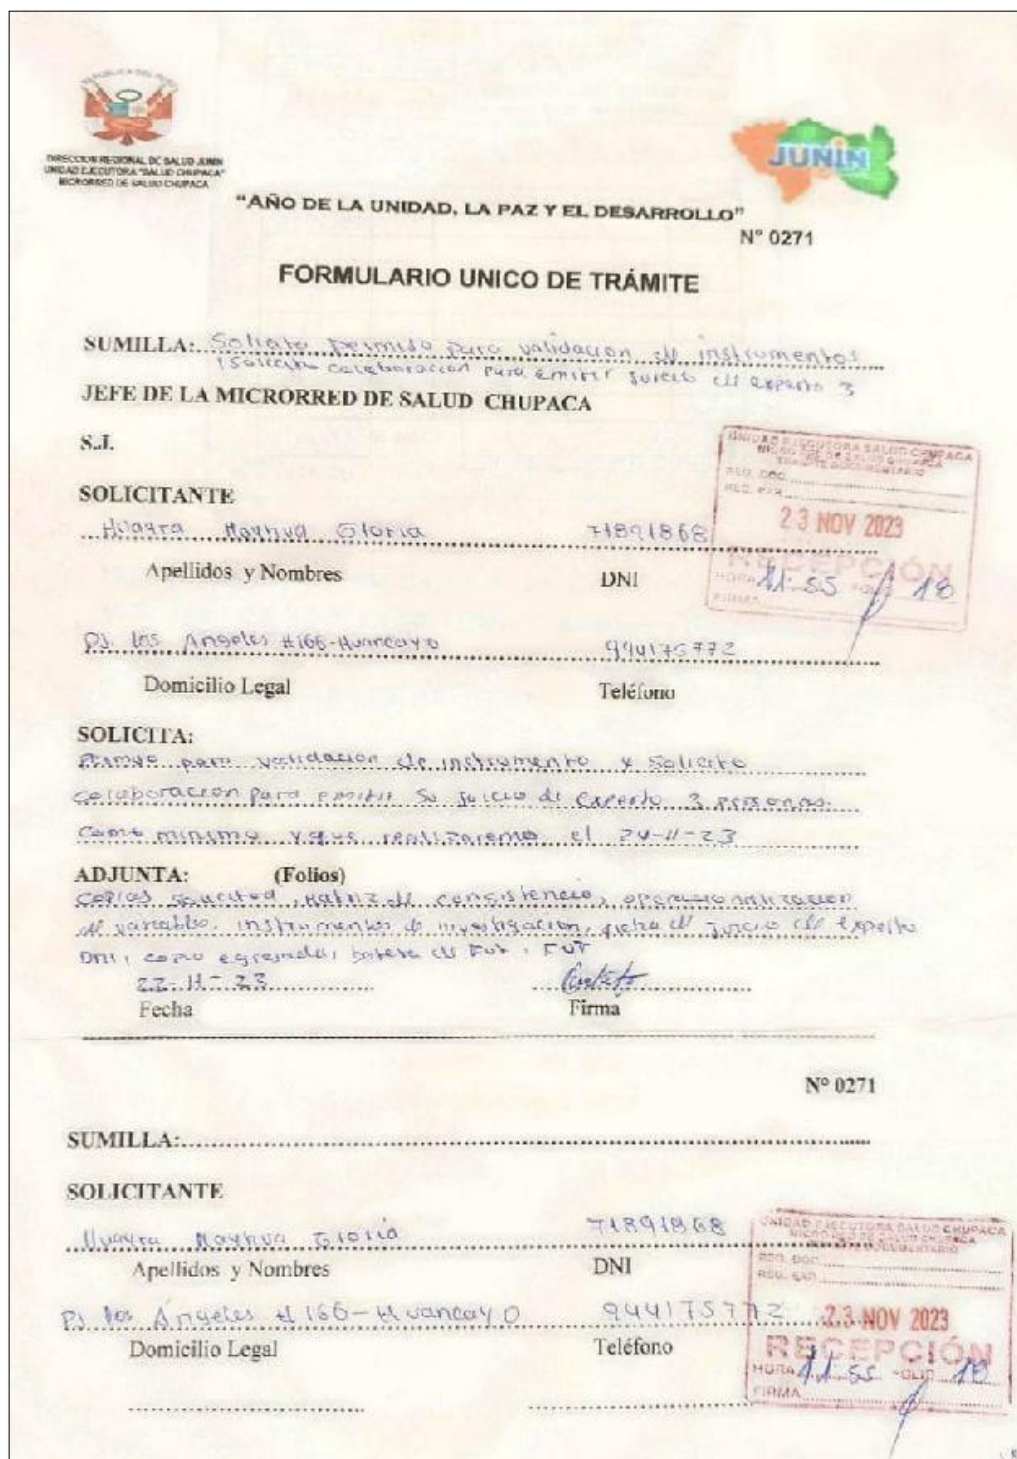 REPUBLICA DEL PERU
DIRECCION REGIONAL DE SALUD JUNIN
UNIDAD EJECUTORA "SALUD CHUPACA"
MICRORRED DE SALUD CHUPACA
JUNIN
"AÑO DE LA UNIDAD, LA PAZ Y EL DESARROLLO"
N° 0271
FORMULARIO UNICO DE TRÁMITE
SUMILLA: Solicito permiso para validacion de instrumentos
(Solicito colaboracion para emitir juicio de experto 3
JEFE DE LA MICRORRED DE SALUD CHUPACA
S.J.
UNIDAD EJECUTORA SALUD CHUPACA
MICRO RED DE SALUD CHUPACA
TRAMITE DOCUMENTARIO
REG. DOC.
REG. EXP.
23 NOV 2023
RECEPCIÓN
HORA 11:55 FOLIO 18
FIRMA
SOLICITANTE
Huayra Mayhua Gloria 71891868
Apellidos y Nombres DNI
Pj. los Angeles #166-Huancayo 944175772
Domicilio Legal Teléfono
SOLICITA:
Permiso para validacion de instrumento y solicito
colaboracion para emitir su juicio de experto 3 personas
como minimo y que realizaremos el 24-11-23
ADJUNTA: (Folios)
copias solicitud, matriz de consistencia, operacionalizacion
de variables, instrumentos de investigacion, ficha de juicio de experto
DNI, como egresada, de FUT, FUT
22-11-23
Fecha Firma
N° 0271
SUMILLA:
SOLICITANTE
Huayra Mayhua Gloria 71891868
Apellidos y Nombres DNI
Pj los Ángeles #166-Huancayo 944175772
Domicilio Legal Teléfono
UNIDAD EJECUTORA SALUD CHUPACA
MICRO RED DE SALUD CHUPACA
TRAMITE DOCUMENTARIO
REG. DOC.
REG. EXP.
23 NOV 2023
RECEPCIÓN
HORA 11:55 FOLIO 18
FIRMA